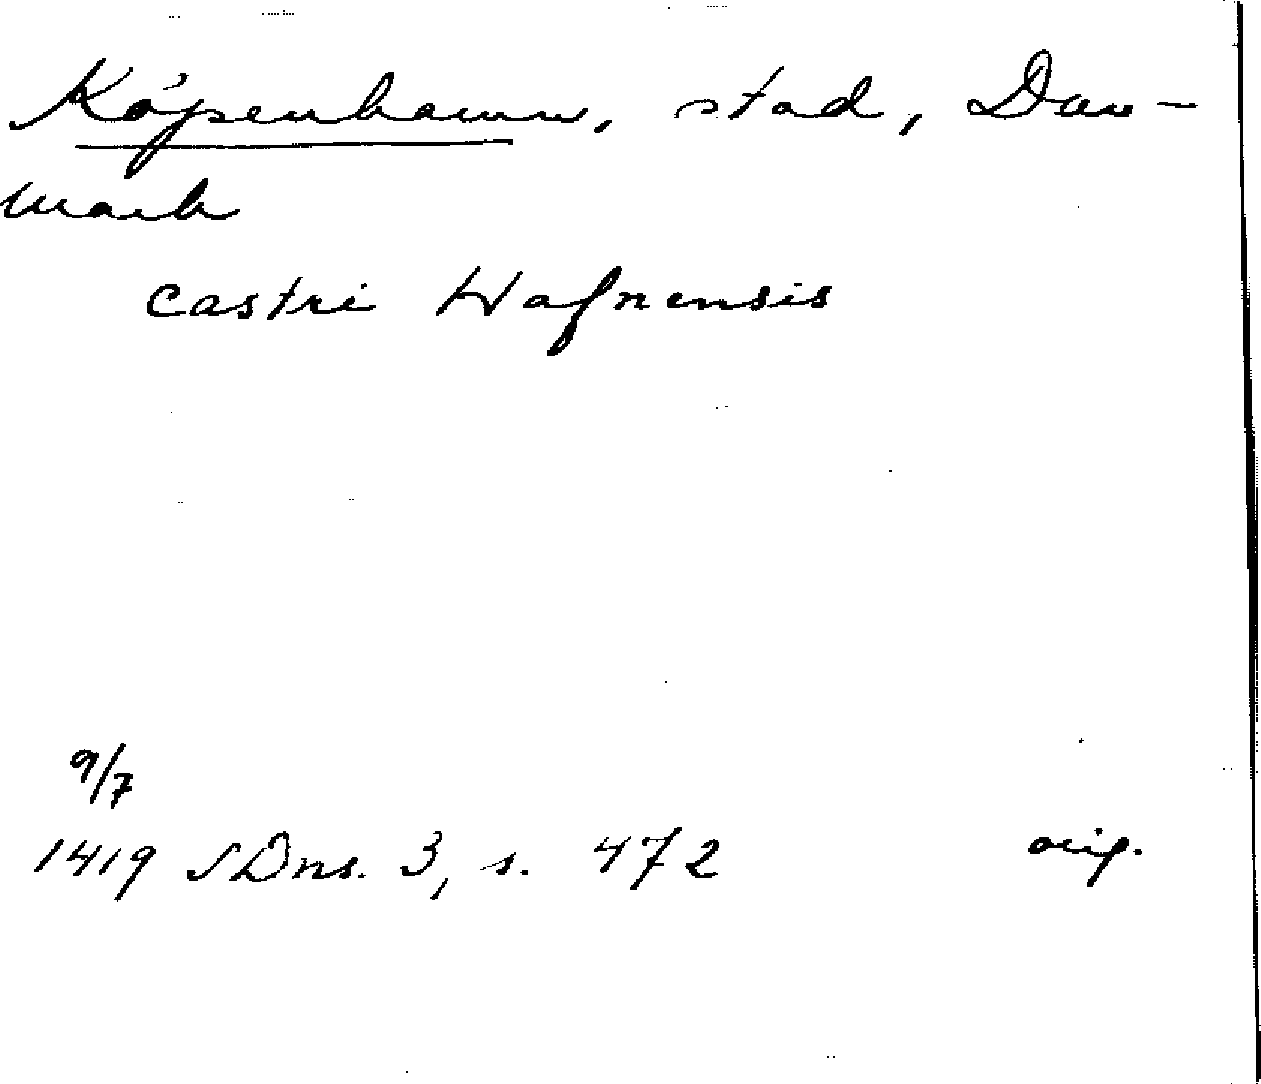 Köpenhamn, stad, Dan-
mark
castri Hafnensis
9/7
1419 SDns. 3, s. 472 orig.